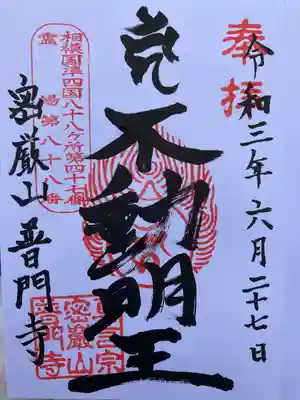 奉拝
令和三年六月二十七日
不動明王
相模国準四国八十八ヶ所第四十七番
霊場第八十八番
密厳山普門寺
真言宗
密嚴山
普門寺